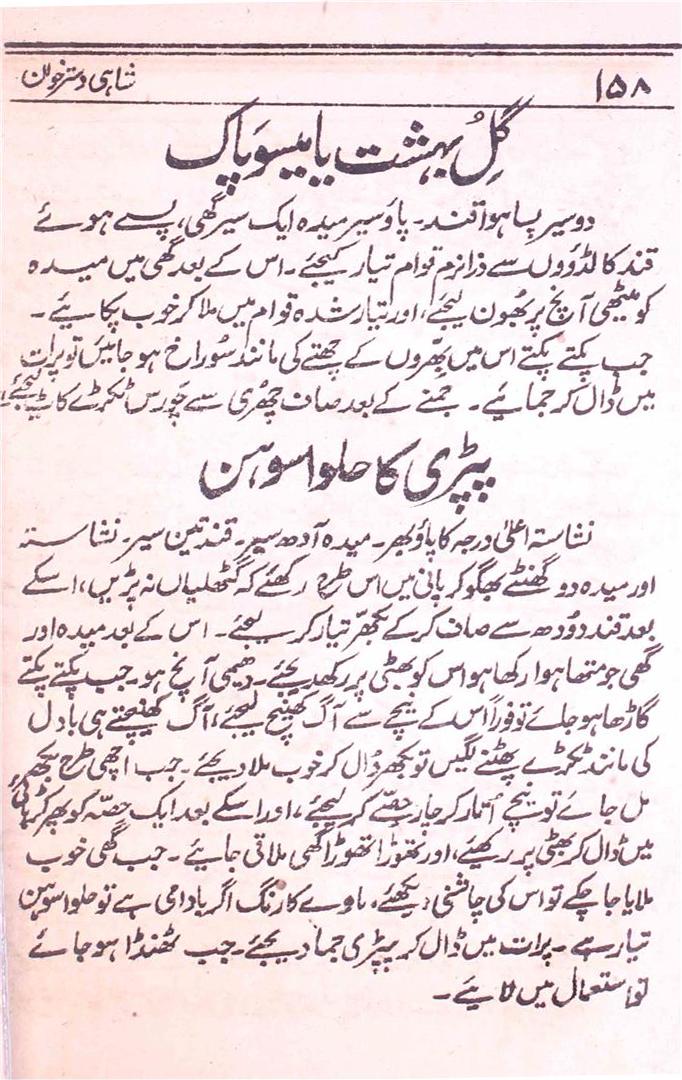 ۱۵۸
شاہی دسترخوان
گلِ بہشت یا میسو پاک
دو سیر پسا ہوا قند۔ پاؤ سیر میدہ ایک سیر گھی، پسے ہوئے
قند کا لڈوؤں سے ذرا نرم قوام تیار کیجئے۔ اس کے بعد گھی میں میدہ
کو میٹھی آنچ پر بھُون لیجئے، اور تیار شدہ قوام میں ملا کر خوب پکایئے۔
جب پکتے پکتے اس میں بِھّروں کے چھتے کی مانند سُوراخ ہو جائیں تو پرات
میں ڈال کر جمایئے۔ جمنے کے بعد صاف چھُری سے چَورس ٹکڑے کاٹ لیجئے۔
پپڑی کا حلوا سوہن
نشاستہ اعلیٰ درجہ کا پاؤ بھر۔ میدہ آدھ سیر۔ قند تین سیر۔ نشاستہ
اور میدہ دو گھنٹے بھگو کر پانی میں اس طرح رکھئے کہ گٹھلیاں نہ پڑیں، اسکے
بعد قند دُودھ سے صاف کر کے تکھر تیار کر لیجئے۔ اس کے بعد میدہ اور
گھی جو متھا ہوا رکھا ہو اس کو بھٹی پر رکھدیجئے۔ دھیمی آنچ ہو۔ جب پکتے پکتے
گاڑھا ہو جائے تو فوراً اس کے نیچے سے آگ کھینچ لیجئے، آگ کھینچتے ہی بادل
کی مانند ٹکڑے پھٹنے لگیں تو تکھر ڈال کر خوب ملا دیجئے۔ جب اچھی طرح تکھر
مل جائے تو نیچے اُتار کر چار حِصّے کر لیجئے، اور اسکے بعد ایک حصّہ کو پھر کڑہائی
میں ڈال کر بھٹی پر رکھیئے، اور تھوڑا تھوڑا گھی ملاتی جایئے۔ جب گھی خوب
ملایا جا چکے تو اس کی چاشنی دیکھئے، ماوے کا رنگ اگر بادامی ہے تو حلوا سوہن
تیار ہے۔ پرات میں ڈال کر پپڑی جما دیجئے۔ جب ٹھنڈا ہو جائے
تو استعمال میں لایئے۔